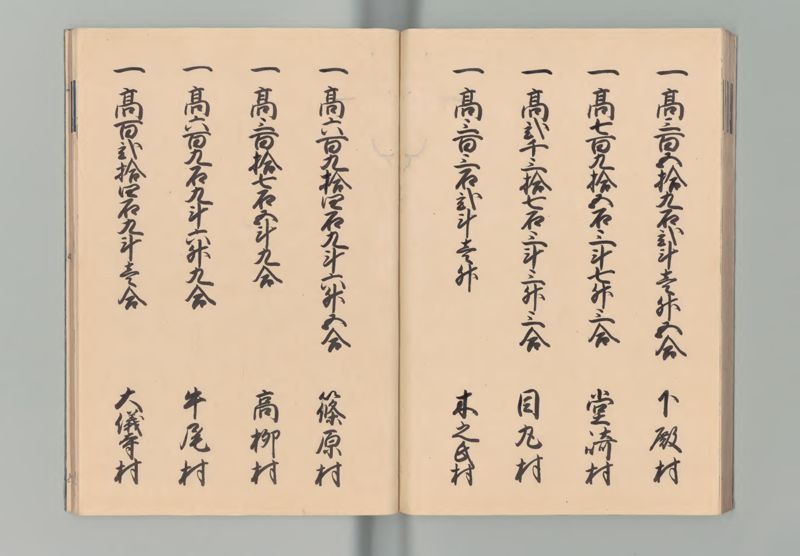 一高三百五拾九石弐斗壱升五合 下殿村
一高七百九拾五石三斗七升三合 堂崎村
一高弐千三拾七石三斗三升三合 目丸村
一高三百三石弐斗壱升 木之氏村
一高六百九拾四石九斗六升五合 篠原村
一高三百拾七石五斗九合 高柳村
一高六百九石九斗六升九合 牛尾村
一高百弐拾四石九斗壱合 大儀寺村